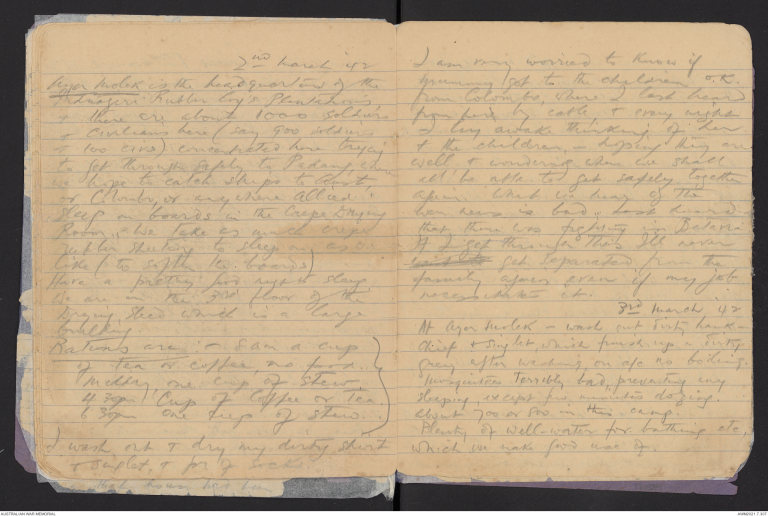 2nd March '42
Ayer Molek is the headquarters of the
Rubber Coy's Plantations
& there are about 1000 soldiers
& civilians here (say 900 soldiers
& 100 civs) concentrated here trying
to get through safely to Padang, where
we hope to catch ships to
or Colombo, or anywhere Allied.
Sleep on boards in the Crepe Drying
Room, & we take as much crepe
rubber sheeting to sleep on as we
like (to soften the boards)
Have a pretty good night's sleep
We are in the 3rd floor of the
Drying Shed which is a large
building.
Rations are:- 8 am a cup
of tea or coffee, no food.
Midday, one cup of stew
4.30pm Cup of Coffee or Tea
6.30pm One cup of stew.
I wash out & dry my dirty shirt
& singlet, & pr of socks
I am very worried to know if
got to the children O.K.
from Colombo, where I last heard
from her by cable, & every night
I lay awake thinking of her
& the children, & hoping they are
well & wondering when we shall
all be able to get safely together
again. What we hear of the
war news is bad, & last heard
that there was fighting in Batavia
If I get through this I'll never
get separated from the
family again even if my job
necessitates it.
3rd March '42
At Ayer Molek - wash out dirty hank-
chief & singlet, which finish up a dirty
grey after washing, on a/c no boiling.
Mosquitoes terribly bad, preventing any
sleeping, except few minutes dozing.
About 700 or 800 in this camp.
Plenty of well-water for bathing etc,
which we make good use of.
AUSTRALIAN WAR MEMORIAL